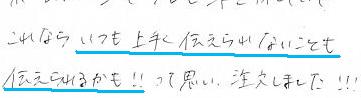 これなら いつも 上手く 伝えられないことも
伝えられるかも!! って思い、注文しました!!!